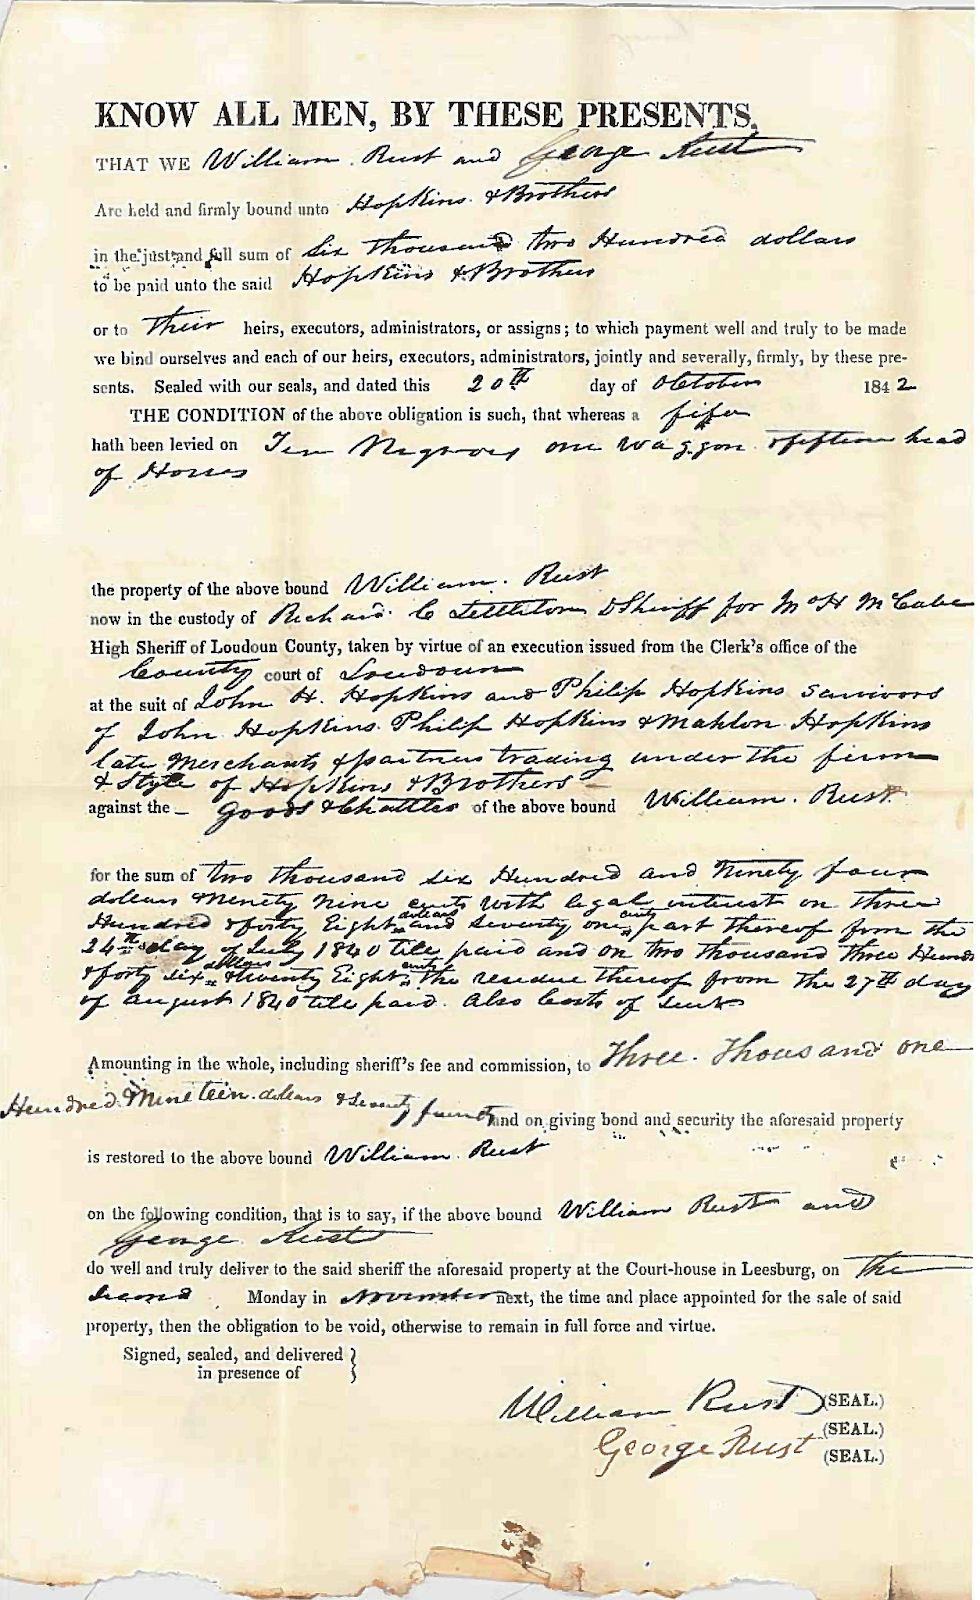 KNOW ALL MEN, BY THESE PRESENTS,
THAT WE William Rust and George Rust
Are held and firmly bound unto Hopkins & Brothers
in the just and full sum of Six thousand two Hundred dollars
to be paid unto the said Hopkins & Brothers
or to Their heirs, executors, administrators, or assigns; to which payment well and truly to be made
we bind ourselves and each of our heirs, executors, administrators, jointly and severally, firmly, by these pre-
sents. Sealed with our seals, and dated this 20th day of October 1842
THE CONDITION of the above obligation is such, that whereas a fifa
hath been levied on Ten Negroes one Waggon & fifteen head
of Horses
the property of the above bound William Rust
now in the custody of Richard C Littleton D Sheriff for M H McCabe
High Sheriff of Loudoun County, taken by virtue of an execution issued from the Clerk's office of the
County court of Loudoun
at the suit of John H. Hopkins and Philip Hopkins survivors
of John Hopkins Philip Hopkins & Mahlon Hopkins
late Merchants & partners trading under the firm
& Style of Hopkins & Brothers
against the goods & Chattles of the above bound William Rust
for the sum of two thousand six Hundred and Ninety four
dollars & Ninety Nine cents with legal interest on three
Hundred & forty Eight dollars and seventy one cents part thereof from the
24th day of July 1840 till paid and on two thousand three Hund
& forty six dollars & twenty Eight cents the residue thereof from the 27th day
of august 1840 till paid. Also Costs of suit
Amounting in the whole, including sheriff's fee and commission, to Three Thousand one
Hundred & Nineteen dollars & seventy four cts and on giving bond and security the aforesaid property
is restored to the above bound William Rust
on the following condition, that is to say, if the above bound William Rust and
George Rust
do well and truly deliver to the said sheriff the aforesaid property at the Court-house in Leesburg, on The
Second Monday in November next, the time and place appointed for the sale of said
property, then the obligation to be void, otherwise to remain in full force and virtue.
Signed, sealed, and delivered }
in presence of
William Rust (SEAL.)
(SEAL.)
George Rust (SEAL.)